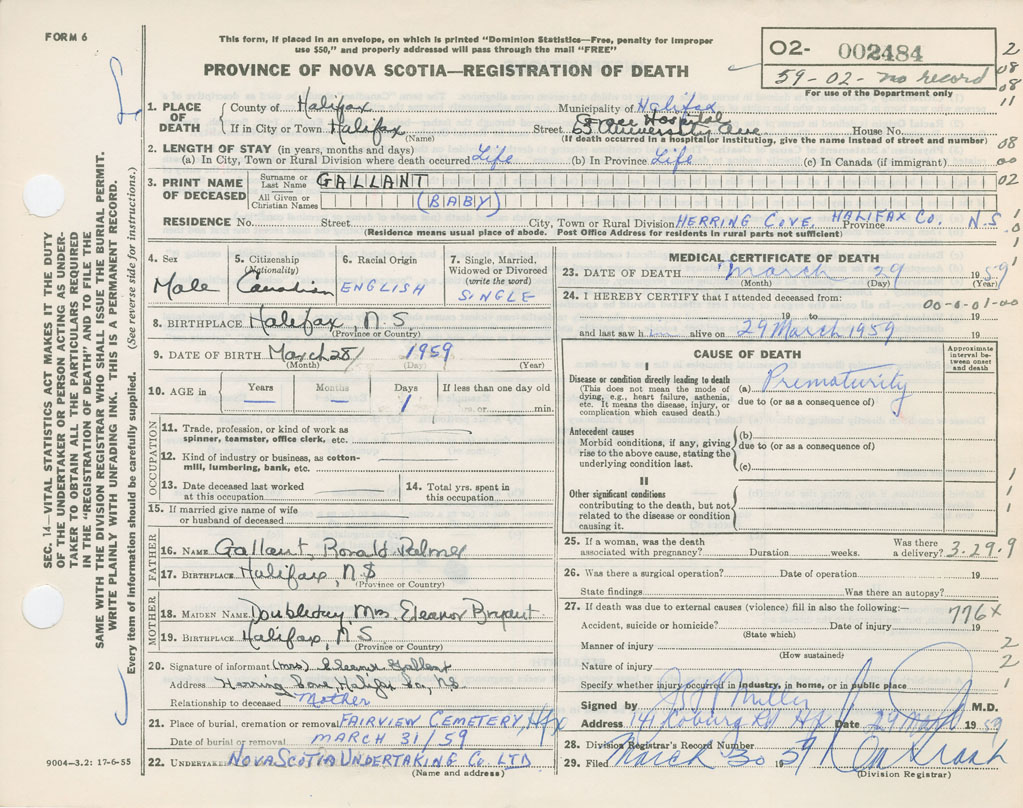 FORM 6
This form, if placed in an envelope, on which is printed "Dominion Statistics—Free, penalty for improper
use $50," and properly addressed will pass through the mail "FREE"
PROVINCE OF NOVA SCOTIA—REGISTRATION OF DEATH
O2- 002484
59-02- no record
For use of the Department only
2
08
08
11
1. PLACE OF DEATH County of Halifax Municipality of Halifax
If in City or Town Halifax (Name) Street Grace Hospital 5 University Ave House No.
(If death occurred in a hospital or institution, give the name instead of street and number)
2. LENGTH OF STAY (in years, months and days)
(a) In City, Town or Rural Division where death occurred Life (b) In Province Life (c) In Canada (if immigrant)
08
00
02
3. PRINT NAME OF DECEASED Surname or Last Name GALLANT
All Given or Christian Names (BABY)
RESIDENCE No. Street City, Town or Rural Division HERRING COVE, HALIFAX CO. Province N.S
(Residence means usual place of abode. Post Office Address for residents in rural parts not sufficient)
4. Sex Male
5. Citizenship (Nationality) Canadian
6. Racial Origin ENGLISH
7. Single, Married, Widowed or Divorced (write the word) SINGLE
8. BIRTHPLACE Halifax, N.S.
(Province or Country)
9. DATE OF BIRTH March 28/ 1959
(Month) (Day) (Year)
10. AGE in Years — Months — Days 1 If less than one day old
hrs. or min.
OCCUPATION
11. Trade, profession, or kind of work as
spinner, teamster, office clerk, etc.
12. Kind of industry or business, as cotton-
mill, lumbering, bank, etc.
13. Date deceased last worked
at this occupation
14. Total yrs. spent in
this occupation
15. If married give name of wife
or husband of deceased
FATHER
16. NAME Gallant, Ronald Palmer
17. BIRTHPLACE Halifax, N.S
(Province or Country)
MOTHER
18. MAIDEN NAME Mrs. Eleanor Bryant
19. BIRTHPLACE Halifax, N S
(Province or Country)
20. Signature of informant (Mrs) Eleanor Gallant
Address Herring Cove, Halifax Co, N.S.
Relationship to deceased Mother
21. Place of burial, cremation or removal FAIRVIEW CEMETERY, Hfx
Date of burial or removal MARCH 31/59
22. UNDERTAKER NOVA SCOTIA UNDERTAKING CO. LTD
(Name and address)
MEDICAL CERTIFICATE OF DEATH
23. DATE OF DEATH March 29 1959
(Month) (Day) (Year)
24. I HEREBY CERTIFY that I attended deceased from:
00-0-01-00
19 to 19
and last saw him alive on 29 March 1959 19
CAUSE OF DEATH
Approximate interval between onset and death
I
Disease or condition directly leading to death
(This does not mean the mode of
dying, e.g., heart failure, asthenia,
etc. It means the disease, injury, or
complication which caused death.)
(a) Prematurity
due to (or as a consequence of)
Antecedent causes
Morbid conditions, if any, giving
rise to the above cause, stating the
underlying condition last.
(b)
due to (or as a consequence of)
(c)
II
Other significant conditions
contributing to the death, but not
related to the disease or condition
causing it.
25. If a woman, was the death
associated with pregnancy? Duration weeks. Was there
a delivery? 3.29.9
26. Was there a surgical operation? Date of operation 19
State findings Was there an autopsy?
27. If death was due to external causes (violence) fill in also the following:—
776x
Accident, suicide or homicide? Date of injury 19
(State which)
Manner of injury 2
(How sustained)
Nature of injury 2
Specify whether injury occurred in industry, in home, or in public place 1
Signed by Miller M.D.
Address 141 Coburg Rd Hfx Date 29 March 1959
28. Division Registrar's Record Number
29. Filed March 30 1959
(Division Registrar)
SEC. 14—VITAL STATISTICS ACT MAKES IT THE DUTY
OF THE UNDERTAKER OR PERSON ACTING AS UNDER-
TAKER TO OBTAIN ALL THE PARTICULARS REQUIRED
IN THE "REGISTRATION OF DEATH" AND TO FILE THE
SAME WITH THE DIVISION REGISTRAR WHO SHALL ISSUE THE BURIAL PERMIT.
WRITE PLAINLY WITH UNFADING INK. THIS IS A PERMANENT RECORD.
Every item of information should be carefully supplied. (See reverse side for instructions.)
9004—3.2: 17-6-55